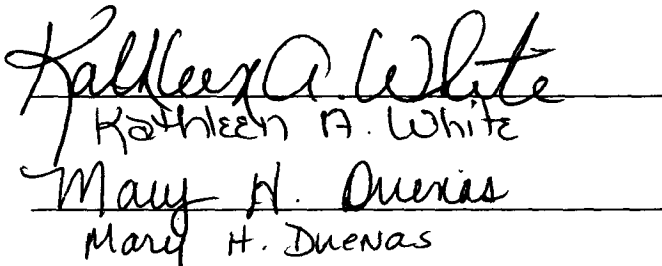 Kathleen A. White
Kathleen A. White
Mary H. Duenas
Mary H. Duenas